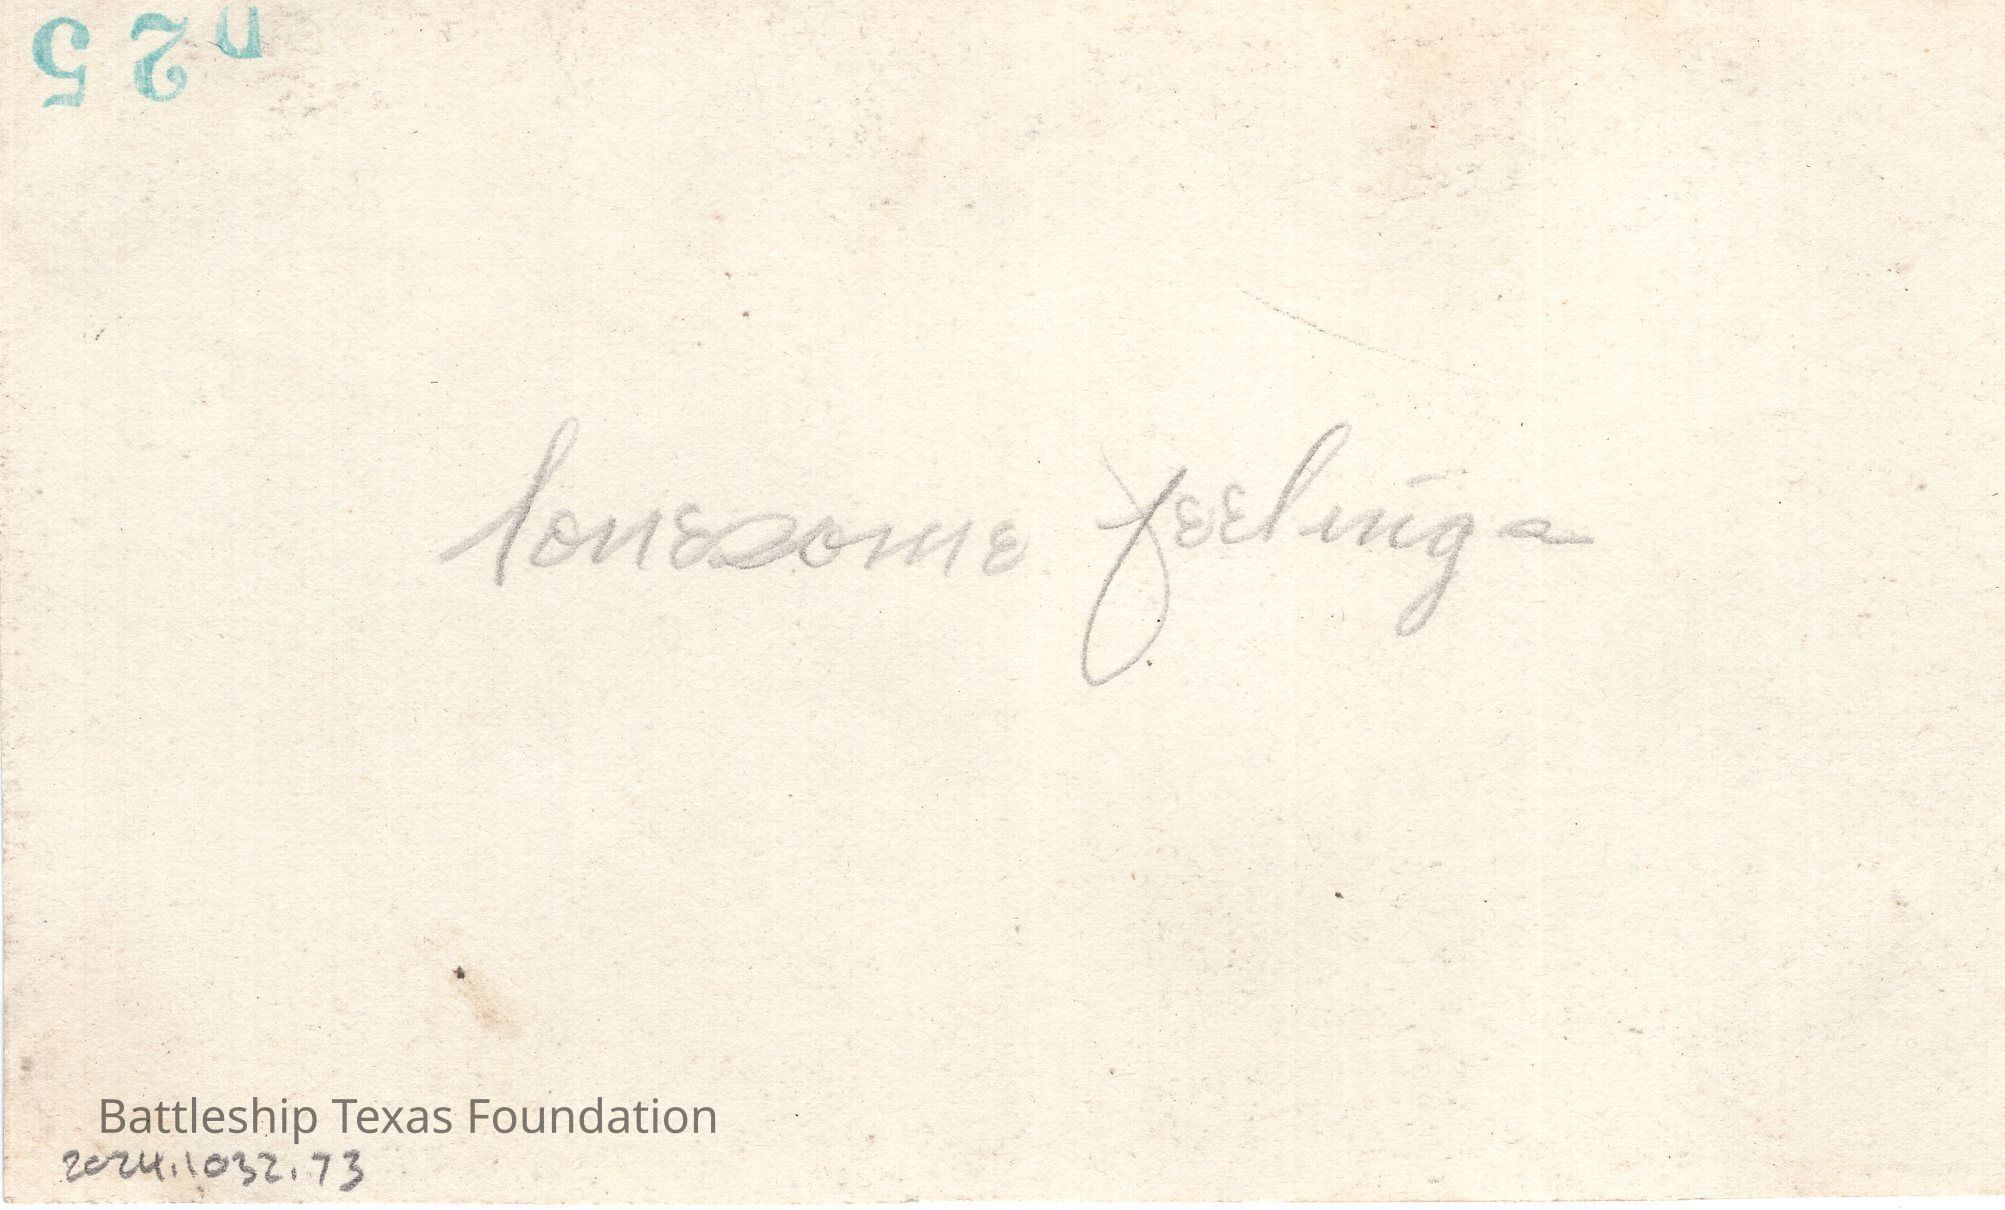 25
lonesome feelings
Battleship Texas Foundation
2024.1032.73